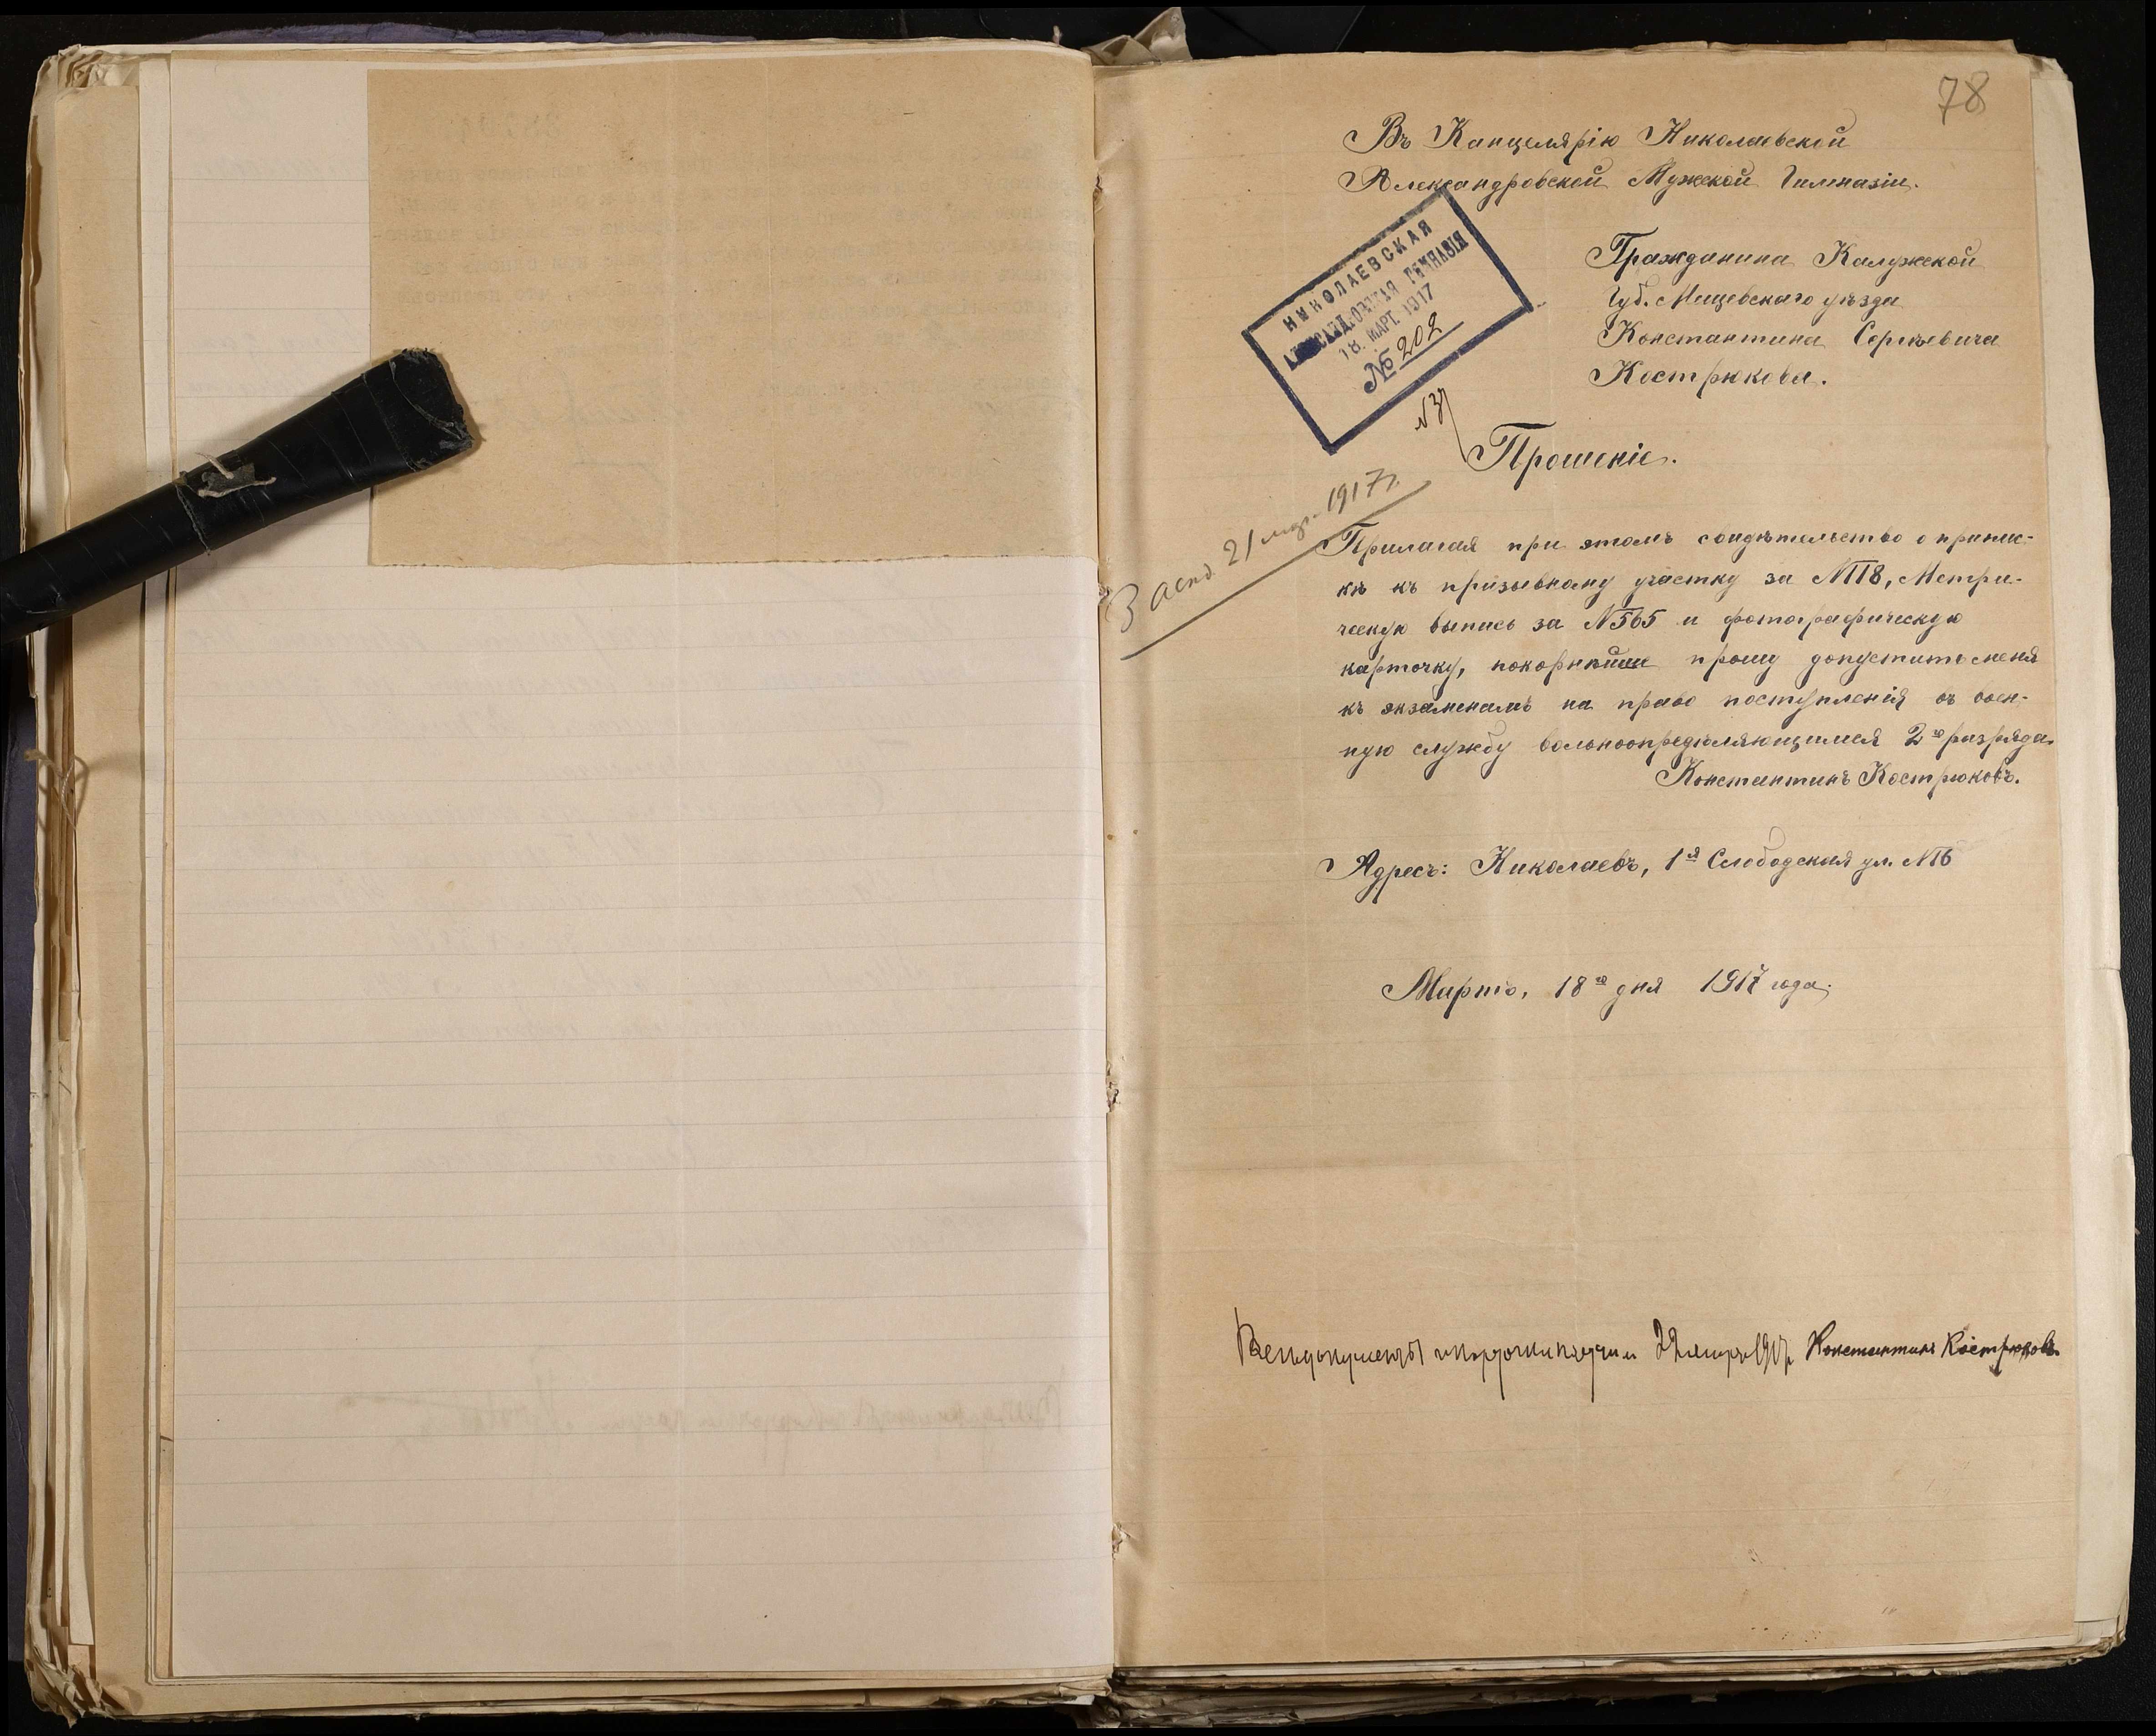 78
Въ Канцелярію Николаевской
Александровской Мужской Гимназіи.
НИКОЛАЕВСКАЯ
АЛЕКСАНДРОВСКАЯ ГИМНАЗІЯ
18. МАРТ. 1917
№ 202
Гражданина Калужской
Губ. Мещевскаго уѣзда
Константина Сергѣевича
Кострюкова.
Прошеніе.
21 мар. 1917 г.
Прилагая при этомъ свидѣтельство о припис-
кѣ къ призывному участку за №118, Метри-
ческую выпись за №565 и фотографическую
карточку, покорнѣйше прошу допустить меня
къ экзаменамъ на право поступленія въ воен-
ную службу вольноопредѣляющимся 2го разряда.
Константинъ Кострюковъ.
Адресъ: Николаевъ, 1я Слободская ул. №6
Мартъ, 18го дня 1917 года.
документы и карточки получил 22 марта 1917 г. Константинъ Кострюковъ